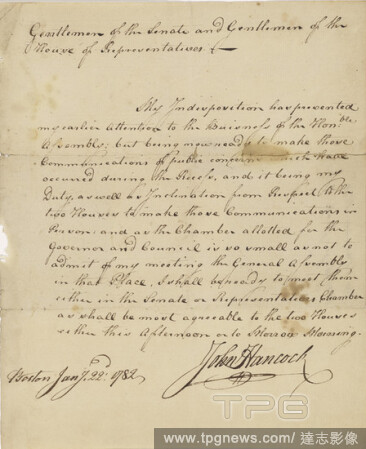 Gentlemen of the Senate and Gentlemen of the
House of Representatives.
My Indisposition has prevented
my earlier Attention to the Business of the Honble
Assembly; but being now ready to make those
Communications of public concern which have
occurred during the Recess, and it being my
Duty, as well as Inclination from Respect to the
two Houses to make those Communications in
Person: and as the Chamber allotted for the
Governor and Council is so small as not to
admit of my meeting the General Assembly
in that Place, I shall be ready to meet them
either in the Senate or Representatives Chamber
as shall be most agreeable to the two Houses
either this Afternoon or to Morrow Morning.
John Hancock
Boston Jany. 22d. 1782
TPG
www.tpgnews.com/達志影像